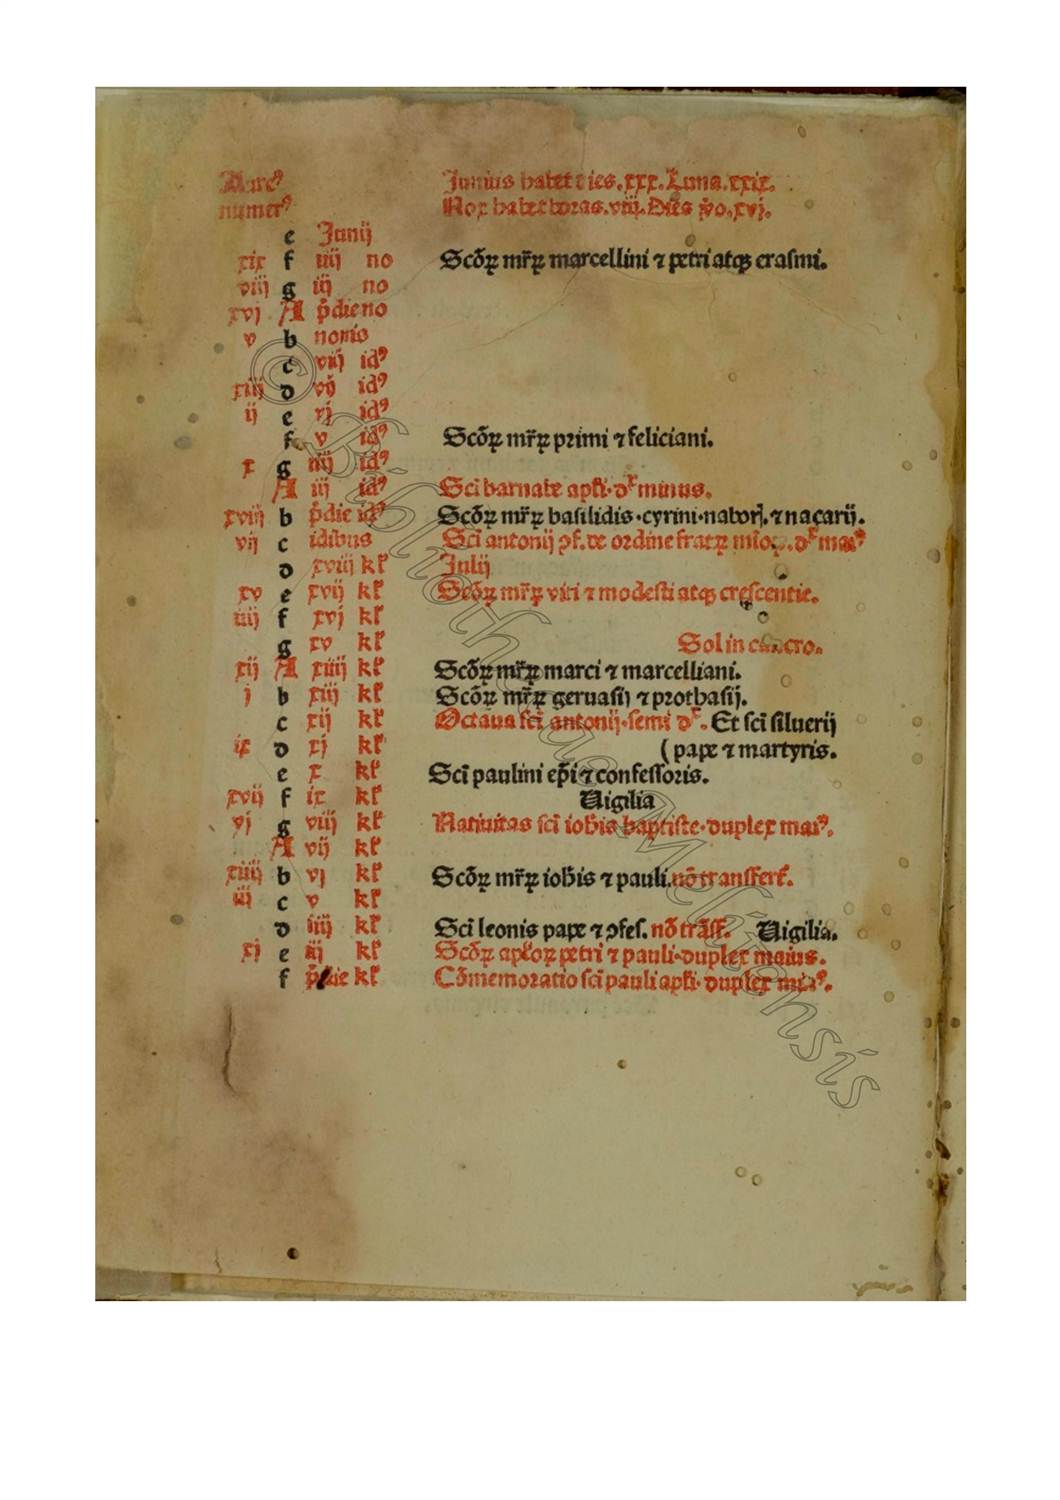 Aureꝰ Junius habet dies.xxx.Luna.xxix.
numerꝰ Nox habet horas.viij.Dies ṽo.xvj.
e Junij
xix f iiij no Scõꝝ mr̃ꝝ marcellini ⁊ petri atqꝫ erasmi.
viij g iij no
xvj A p̃die no
v b nonis
c viij idꝰ
xiij d vij idꝰ
ij e vj idꝰ
f v idꝰ Scõꝝ mr̃ꝝ primi ⁊ feliciani.
x g iiij idꝰ
A iij idꝰ Sci barnabe apl̃i·dx̃ minus.
xviij b p̃die idꝰ Scõꝝ mr̃ꝝ basilidis·cyrini·naborj.⁊ naçarij.
vij c idibus Sci antonij ↄf.de ordine fratꝝ mĩoꝝ.dx̃ maiꝰ
d xviij kl̃ Julij
xv e xvij kl̃ Scõꝝ mr̃ꝝ viti ⁊ modesti atqꝫ crescentie.
iiij f xvj kl̃
g xv kl̃ Sol in cancro.
xij A xiiij kl̃ Scõꝝ mr̃ꝝ marci ⁊ marcelliani.
j b xiij kl̃ Scõꝝ mr̃ꝝ geruasij ⁊ prothasij.
c xij kl̃ Octaua sci antonij·semi dx̃. Et sci siluerij
ix d xj kl̃ (pape ⁊ martyris.
e x kl̃ Sci paulini ep̃i ⁊ confessoris.
xvij f ix kl̃ Uigilia
vj g viij kl̃ Natiuitas sci ioh̃is baptiste·duplex maiꝰ.
A vij kl̃
xiiij b vj kl̃ Scõꝝ mr̃ꝝ ioh̃is ⁊ pauli.nõ transfert̃.
iij c v kl̃
d iiij kl̃ Sci leonis pape ⁊ ↄfes. nõ trãsf̃. Uigilia.
xj e iij kl̃ Scõꝝ apl̃oꝝ petri ⁊ pauli·duplex maius.
f p̃die kl̃ Cõmemoratio sci pauli apl̃i·duplex maiꝰ.
© Bibliothecae Melitensis